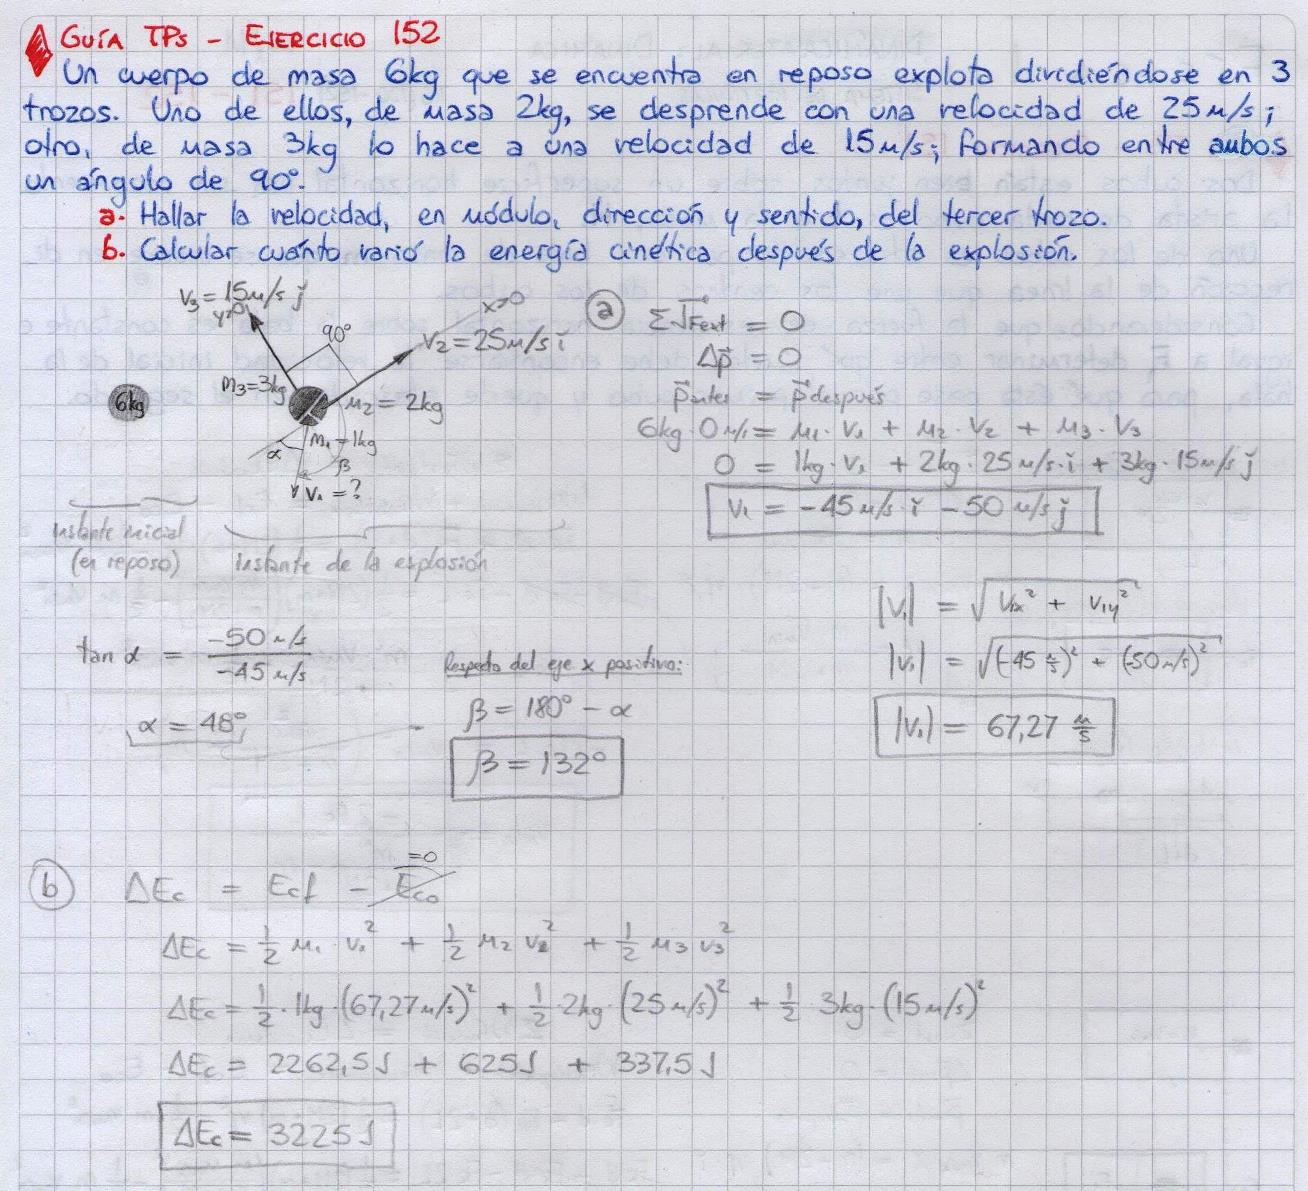 GUÍA TPs - EJERCICIO 152
Un cuerpo de masa 6kg que se encuentra en reposo explota dividiéndose en 3
trozos. Uno de ellos, de masa 2kg, se desprende con una velocidad de 25m/s;
otro, de masa 3kg lo hace a una velocidad de 15m/s; formando entre ambos
un ángulo de 90°.
a. Hallar la velocidad, en módulo, dirección y sentido, del tercer trozo.
b. Calcular cuánto varió la energía cinética después de la explosión.
V3 = 15m/s ǰ
y>0
90°
x>0
V2 = 25m/s ǐ
m3=3kg
6kg
m2 = 2kg
m1=1kg
α
β
V1 = ?
instante inicial
(en reposo)
instante de la explosión
a
ΣJFext = 0
Δp = 0
pantes = pdespués
6kg · 0m/s = m1 · V1 + m2 · V2 + m3 · V3
0 = 1kg · V1 + 2kg · 25m/s · ǐ + 3kg · 15m/s ǰ
V1 = -45m/s · ǐ - 50m/s ǰ
|V1| = √(V1x² + V1y²)
|V1| = √((-45 m/s)² + (-50m/s)²)
|V1| = 67,27 m/s
tan α = -50m/s / -45m/s
α = 48°
Respecto del eje x positivo:
β = 180° - α
β = 132°
b
ΔEc = Ecf - Eco =0
ΔEc = 1/2 m1 · V1² + 1/2 m2 V2² + 1/2 m3 V3²
ΔEc = 1/2 · 1kg · (67,27m/s)² + 1/2 · 2kg · (25m/s)² + 1/2 3kg · (15m/s)²
ΔEc = 2262,5J + 625J + 337,5J
ΔEc = 3225J